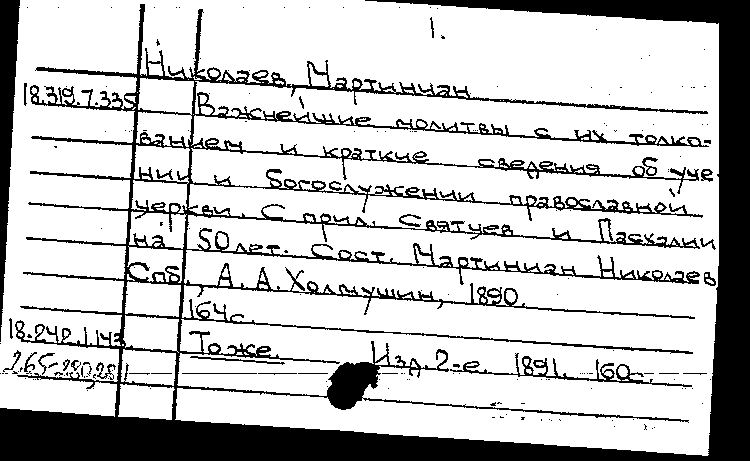 1.
Николаев, Мартиниан
18.319.7.335. Важнейшие молитвы с их толко-
ванием и краткие сведения об уче-
нии и богослужении православной
церкви. С прил. Святцев и Пасхалии
на 50 лет. Сост. Мартиниан Николаев
Спб., А. А. Холмушин, 1890.
164с.
18.242.1.143. Тоже. Изд. 2-е. 1891. 160с.